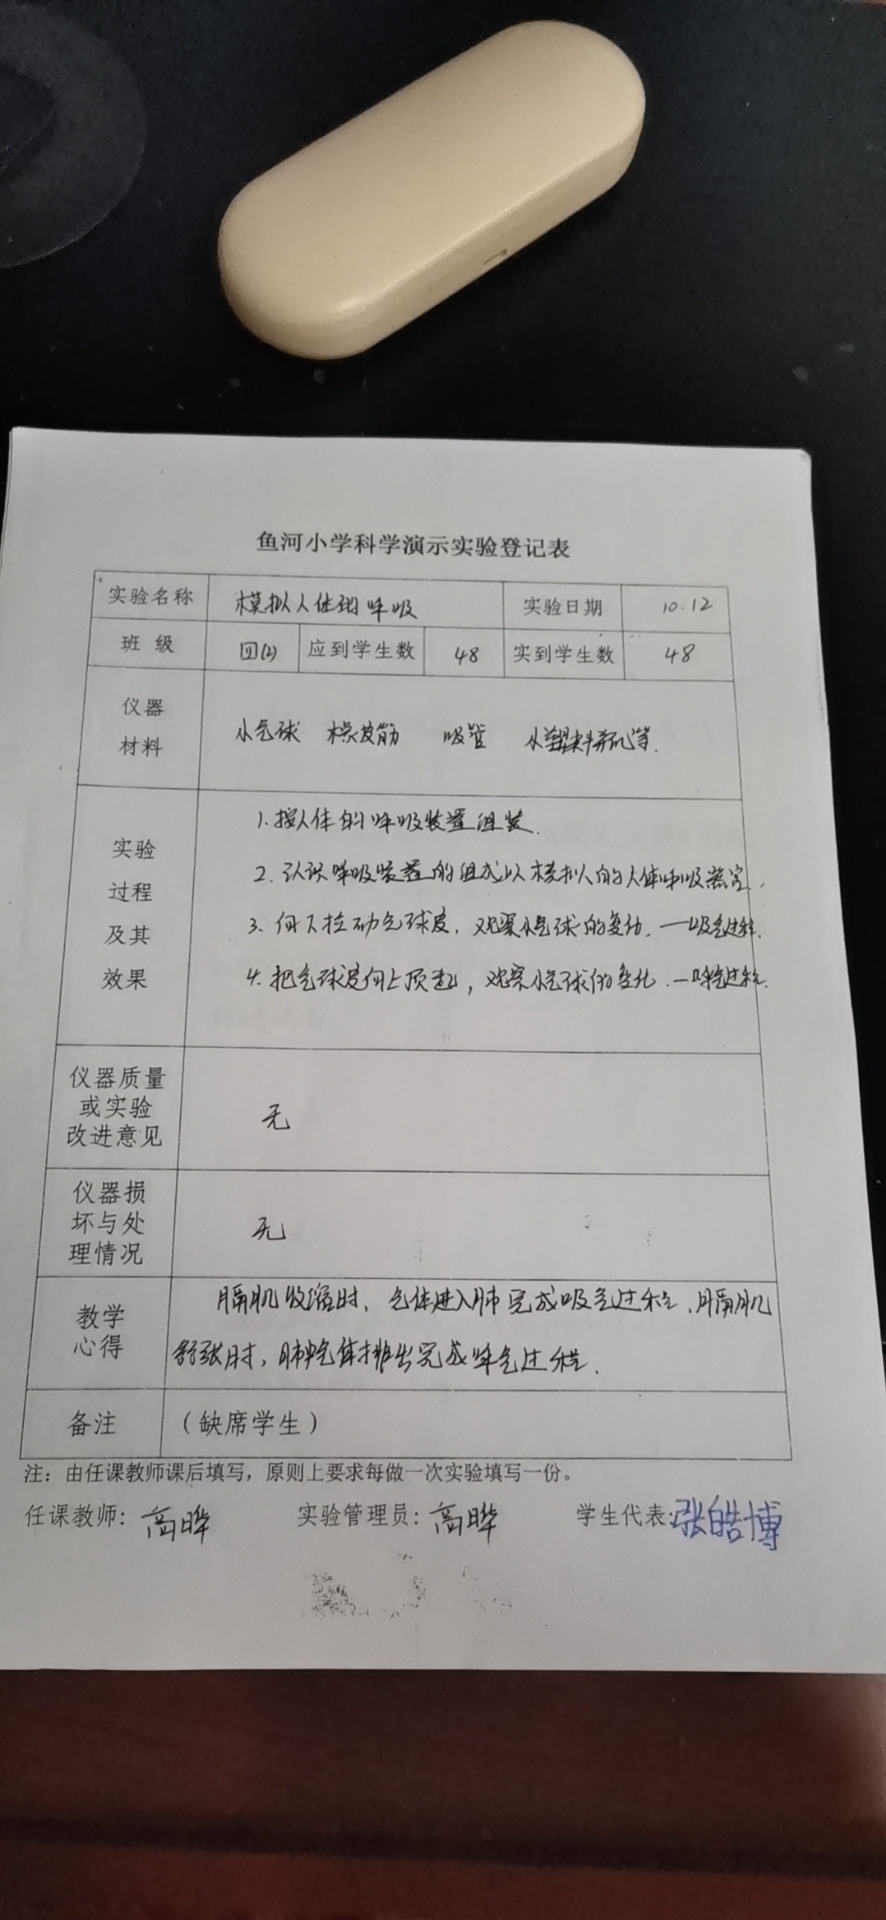 鱼河小学科学演示实验登记表
实验名称 模拟人体的呼吸 实验日期 10.12
班 级 四(2) 应到学生数 48 实到学生数 48
仪器
材料
小气球 橡皮筋 吸管 小塑料瓶等.
实验
过程
及其
效果
1.按人体的呼吸装置组装.
2.认识呼吸装置的组成以模拟人的人体呼吸器官.
3.向下拉动气球皮,观察小气球的变化.—吸气过程.
4.把气球皮向上顶起,观察小气球的变化.—呼气过程.
仪器质量
或实验
改进意见
无
仪器损
坏与处
理情况
无
教学
心得
膈肌收缩时,气体进入肺完成吸气过程,膈肌
舒张时,肺中气体排出完成呼气过程.
备注 (缺席学生)
注:由任课教师课后填写,原则上要求每做一次实验填写一份。
任课教师:高晔 实验管理员:高晔 学生代表:张皓博